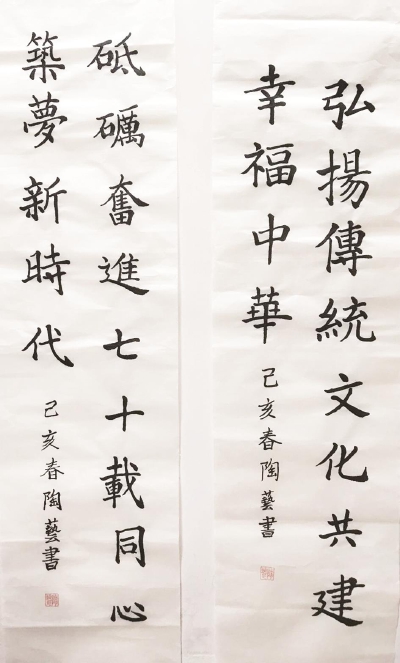 弘揚傳統文化共建
幸福中華
己亥春陶藝書
砥礪奮進七十載同心
築夢新時代
己亥春陶藝書